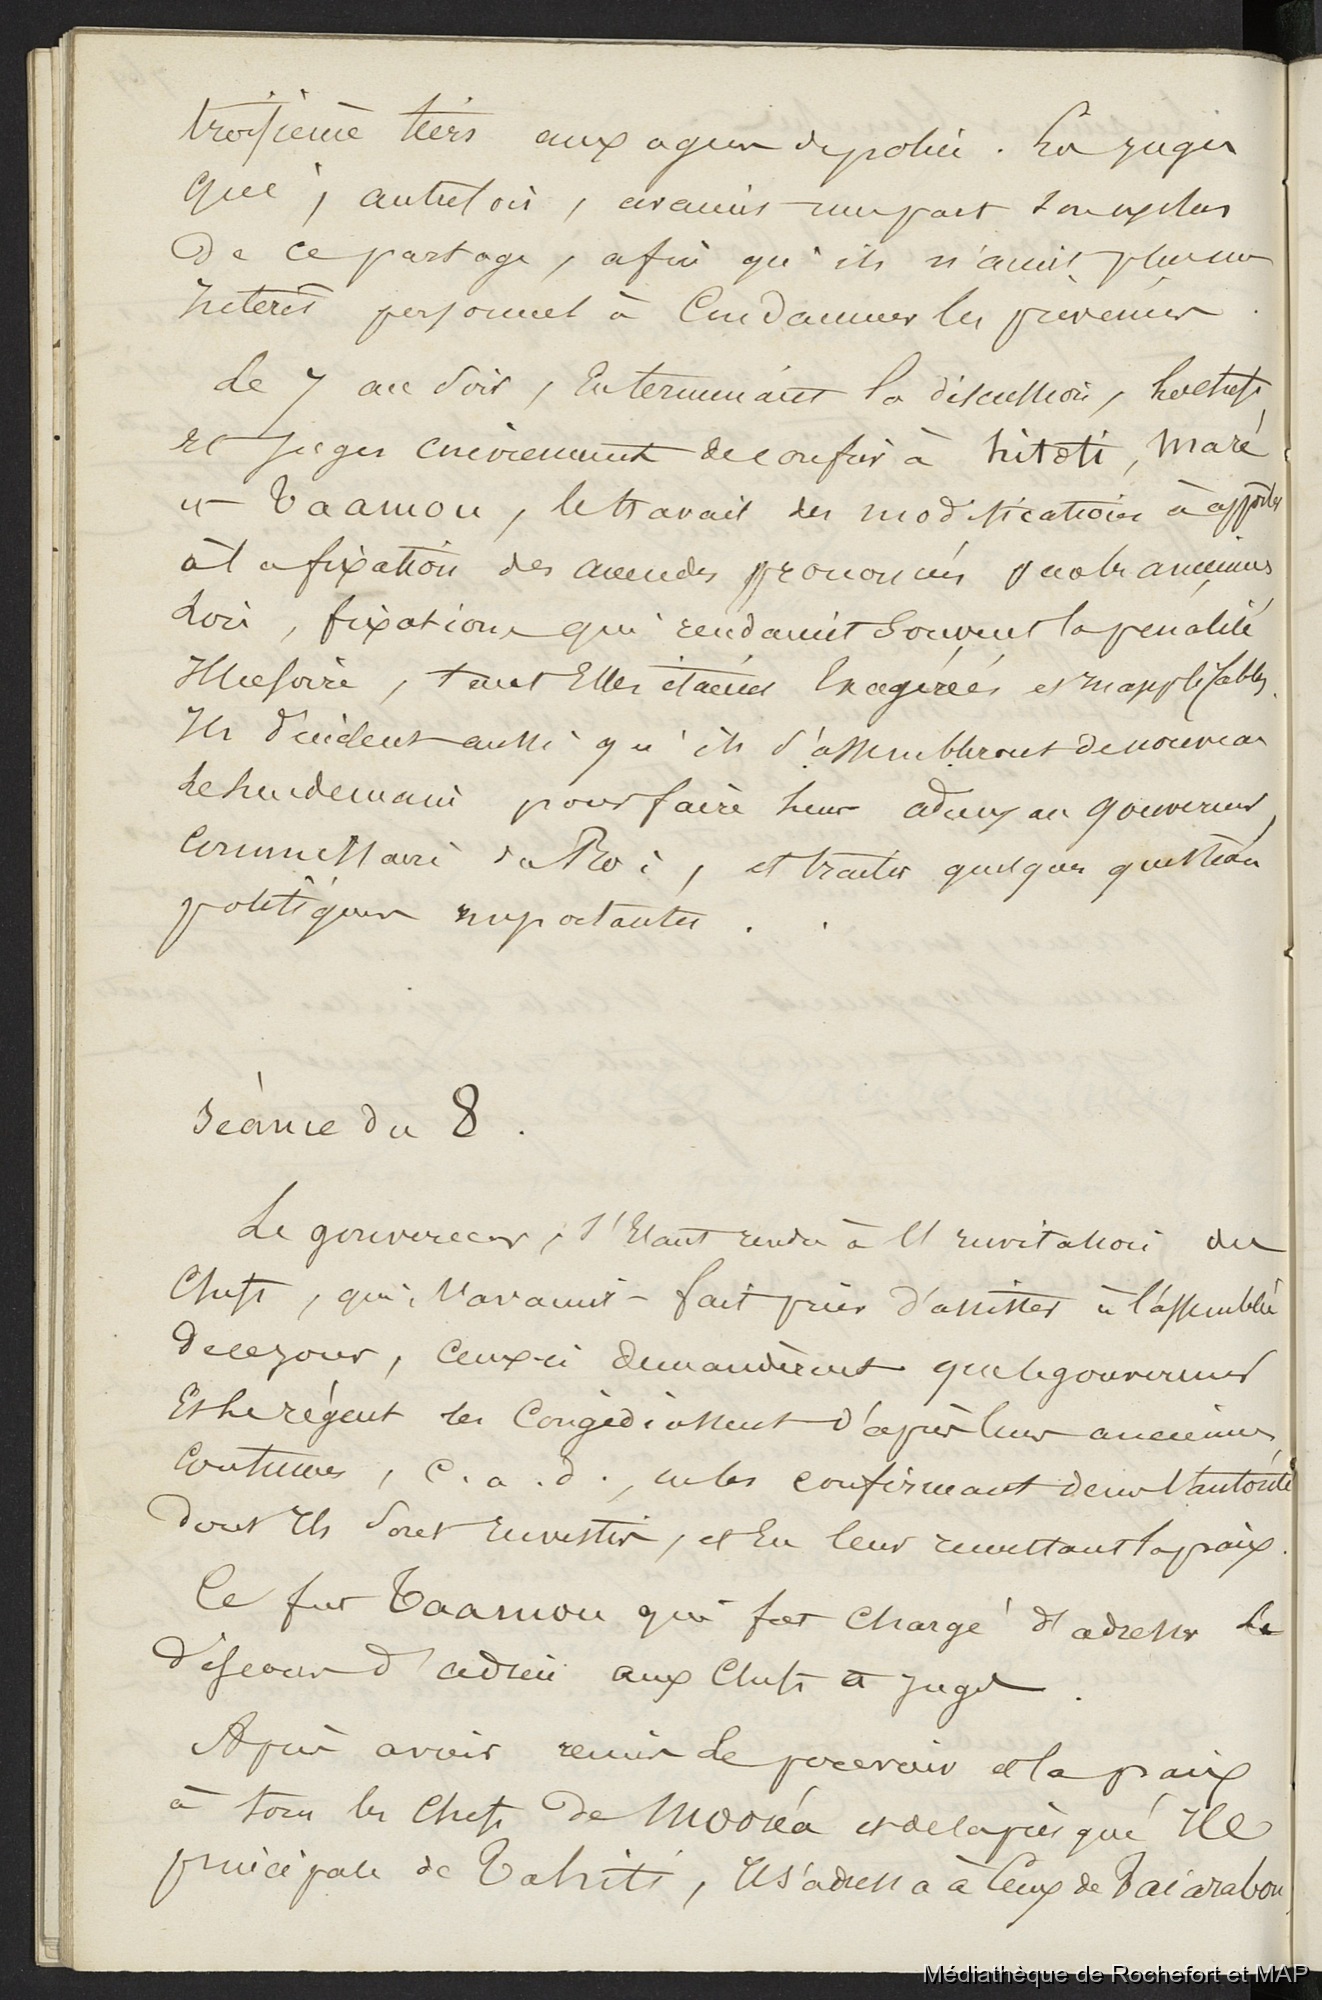 troisième tiers aux agens de police. Les juges
qui, autrefois, avaient une part sont exclus
de ce partage, afin qu'ils n'aient plus un
intérêt personnel à condamner les prévenus.
Le 7 au soir, en terminant la discussion, les chefs
et juges conviennent de confier à hitoti, maré
et Taamou, le travail des modifications à apporter
à la fixation des amendes prononcées par les anciennes
lois, fixations qui rendaient souvent la pénalité
illusoire, tant elles étaient exagérées et inapplicables.
Ils décident aussi qu'ils s'assembleront de nouveau
le lendemain pour faire leurs adieux au gouverneur,
commissaire du Roi, et traiter quelques questions
politiques importantes.
Séance du 8.
Le gouverneur, s'étant rendu à l'invitation des
chefs, qui l'avaient fait prier d'assister à l'assemblée
de ce jour, ceux-ci demandèrent que le gouverneur
et le régent les congédiassent d'après leurs anciennes
coutumes, c.a.d., en les confirmant dans l'autorité
dont ils sont investis, et en leur remettant la paix.
Ce fut Taamou qui fut chargé d'adresser le
discours d'adieu aux chefs et juges.
Après avoir remis le pouvoir et la paix
à tous les chefs de Mooréa et de la presqu'île
principale de Tahiti, il s'adressa à ceux de Taiarabou,
Médiathèque de Rochefort et MAP